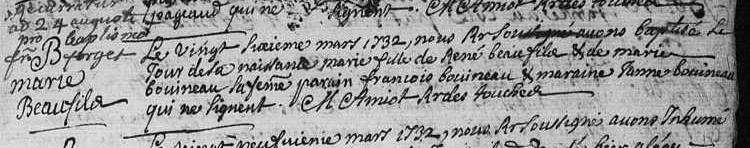 ad 24 augusti
pro baptismo
forget
qui ne signent. M Amiot Rr des touches
B
marie
Beaufils
Le vingt sixieme mars 1732, nous Rr soussigné avons baptisé le
jour de sa naissance marie fille de René beaufils & de marie
bouineau sa feme parain francois bouineau & maraine Janne bouineau
qui ne signent. M Amiot Rr des touches
Le vingt neufvieme mars 1732, nous Rr soussigné avons Inhumé